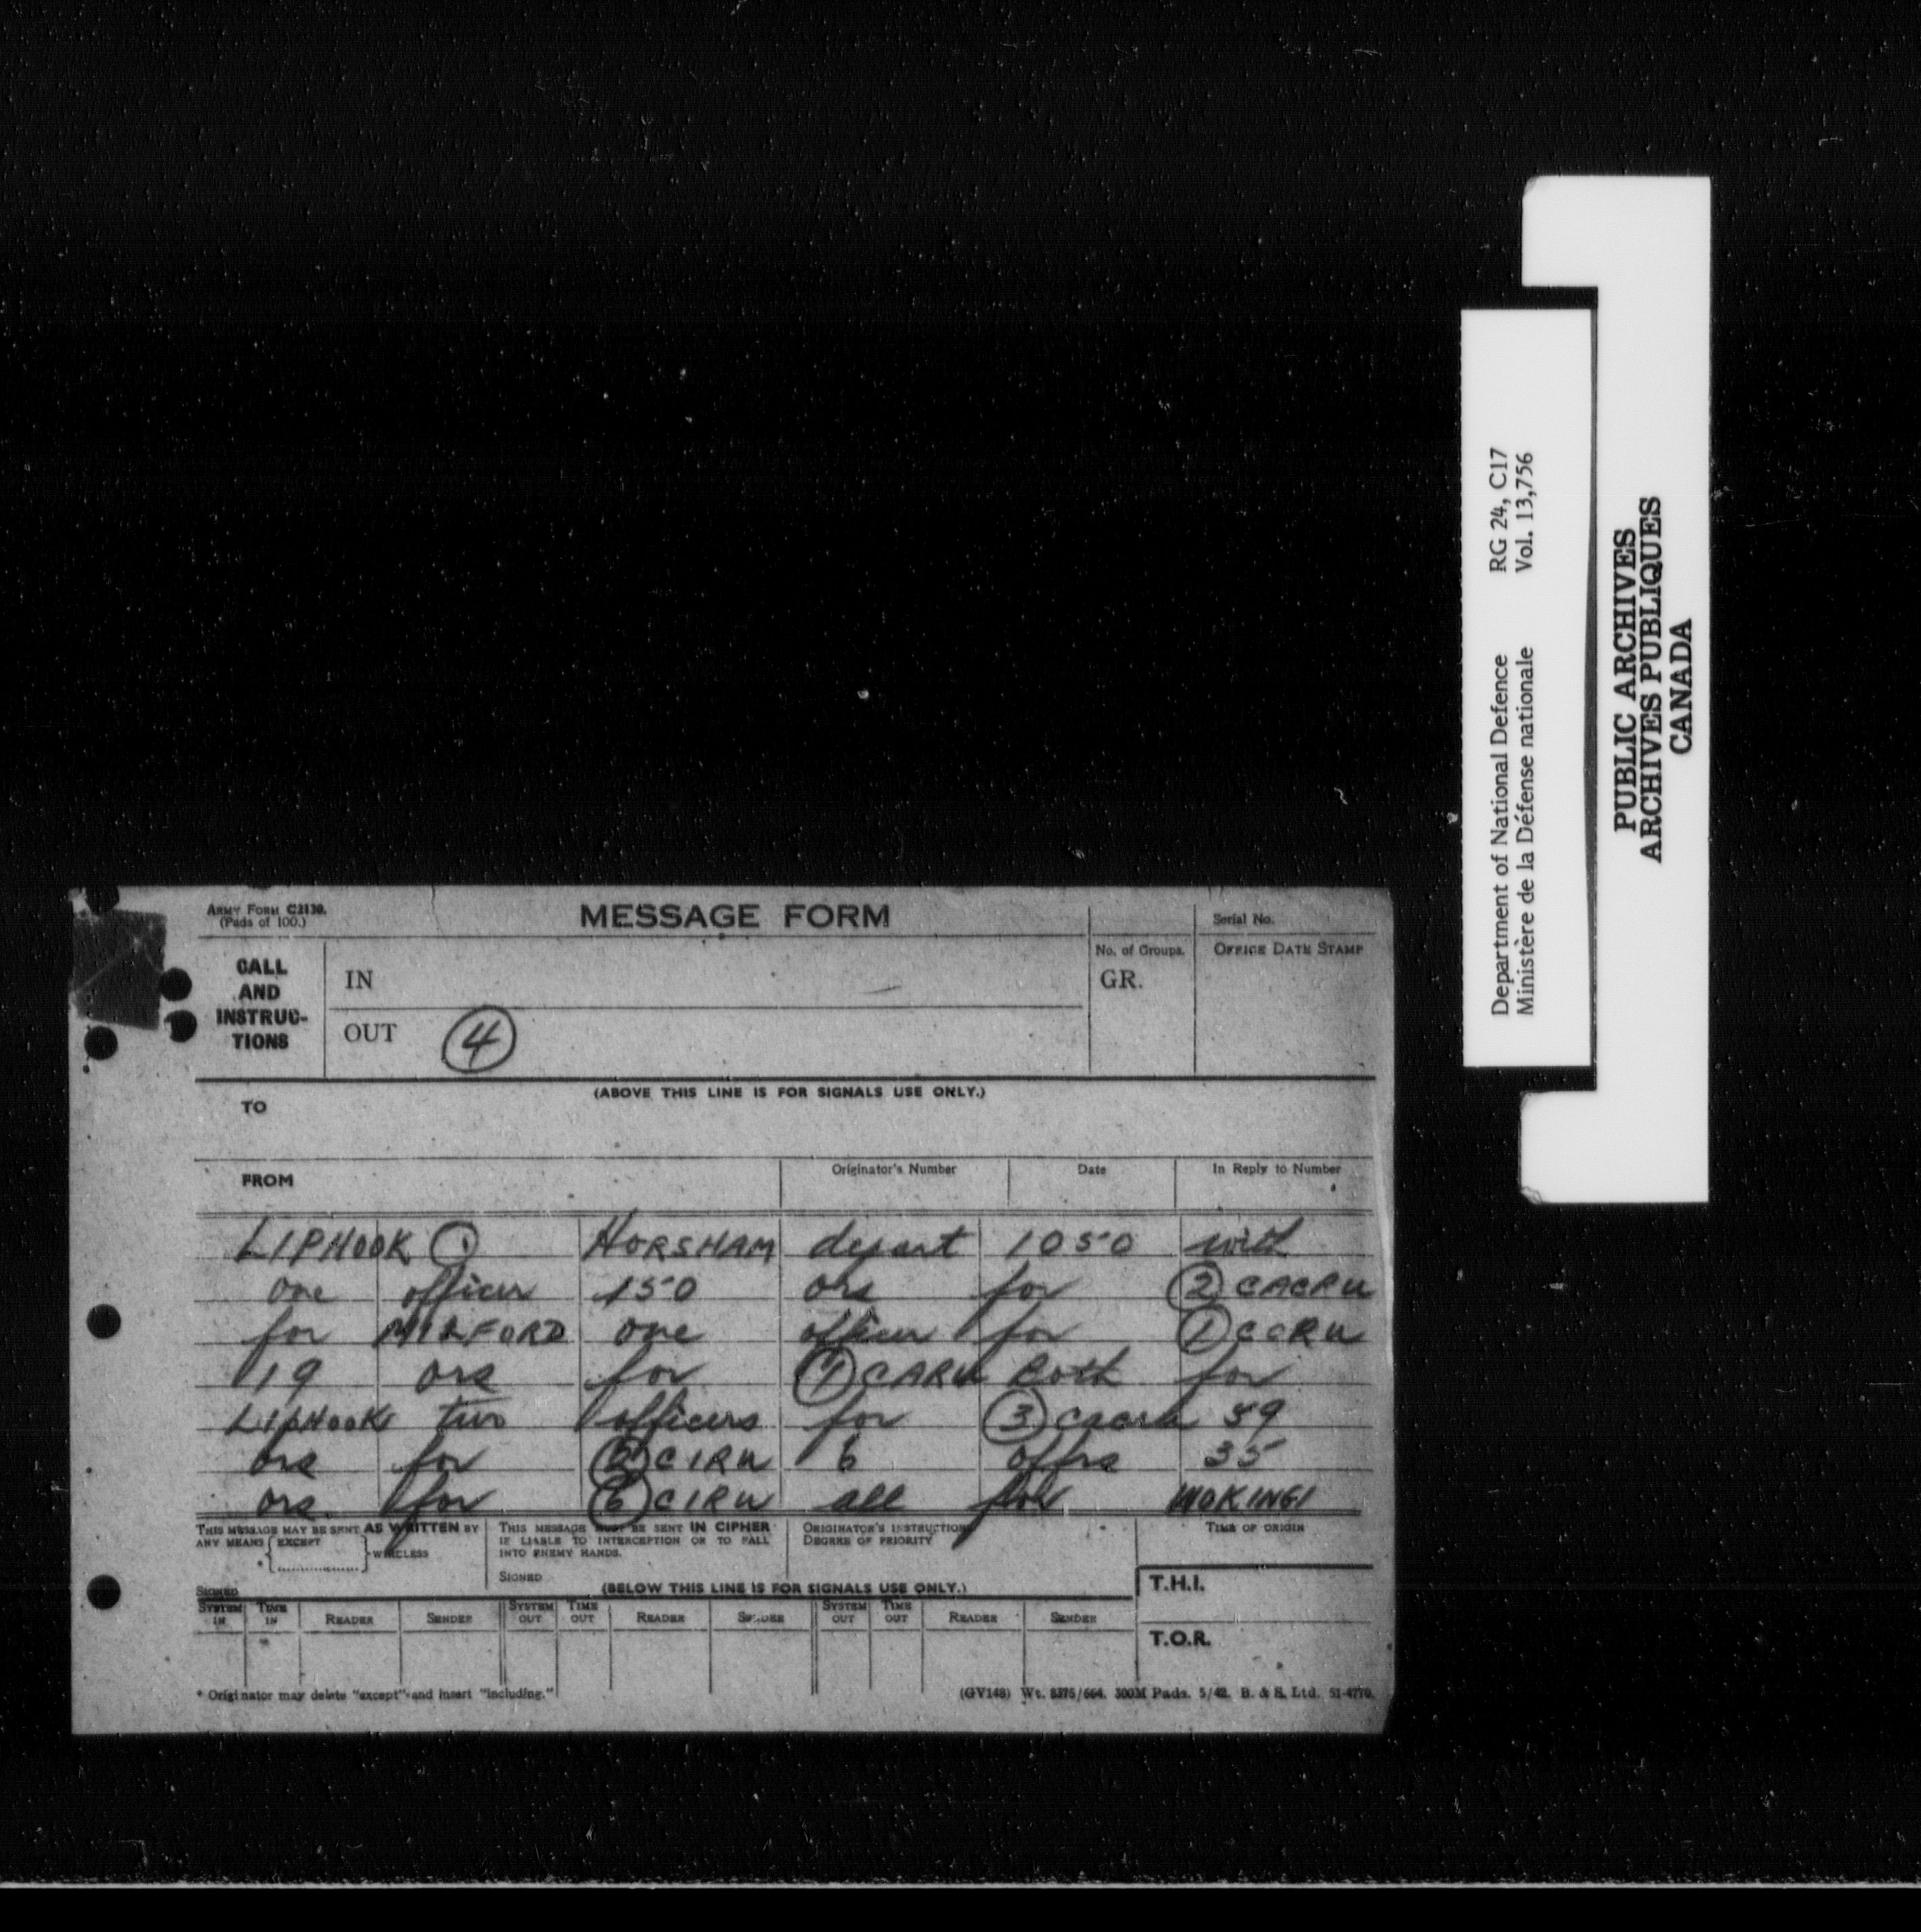 ARMY FORM C2130.
(Pads of 100.)
MESSAGE FORM
Serial No.
CALL
AND
INSTRUC-
TIONS
IN
No. of Groups.
GR.
OFFICE DATE STAMP
OUT 4
(ABOVE THIS LINE IS FOR SIGNALS USE ONLY.)
TO
FROM
Originator's Number
Date
In Reply to Number
LIPHOOK HORSHAM depart 1050 with
one officer 150 ors for 2 CACRU
for MILFORD one officer for 1 CCRU
19 ors for 1 CARU Both for
LIPHOOK two officers for 3 CACRU 59
ors for CIRU 6 offrs 35
ors for 6 CIRU all for WOKING
THIS MESSAGE MAY BE SENT AS WRITTEN BY
ANY MEANS EXCEPT WIRELESS
SIGNED
THIS MESSAGE MUST BE SENT IN CIPHER
IF LIABLE TO INTERCEPTION OR TO FALL
INTO ENEMY HANDS.
SIGNED
ORIGINATOR'S INSTRUCTIONS
DEGREE OF PRIORITY
TIME OF ORIGIN
(BELOW THIS LINE IS FOR SIGNALS USE ONLY.)
T.H.I.
SYSTEM IN TIME IN READER SENDER SYSTEM OUT TIME OUT READER SENDER SYSTEM OUT TIME OUT READER SENDER
T.O.R.
* Originator may delete "except" and insert "including."
(GV148) Wt. 8375/664. 300M Pads. 5/42. B. & S. Ltd. 51-4770.
Department of National Defence RG 24, C17
Ministère de la Défense nationale Vol. 13,756
PUBLIC ARCHIVES
ARCHIVES PUBLIQUES
CANADA